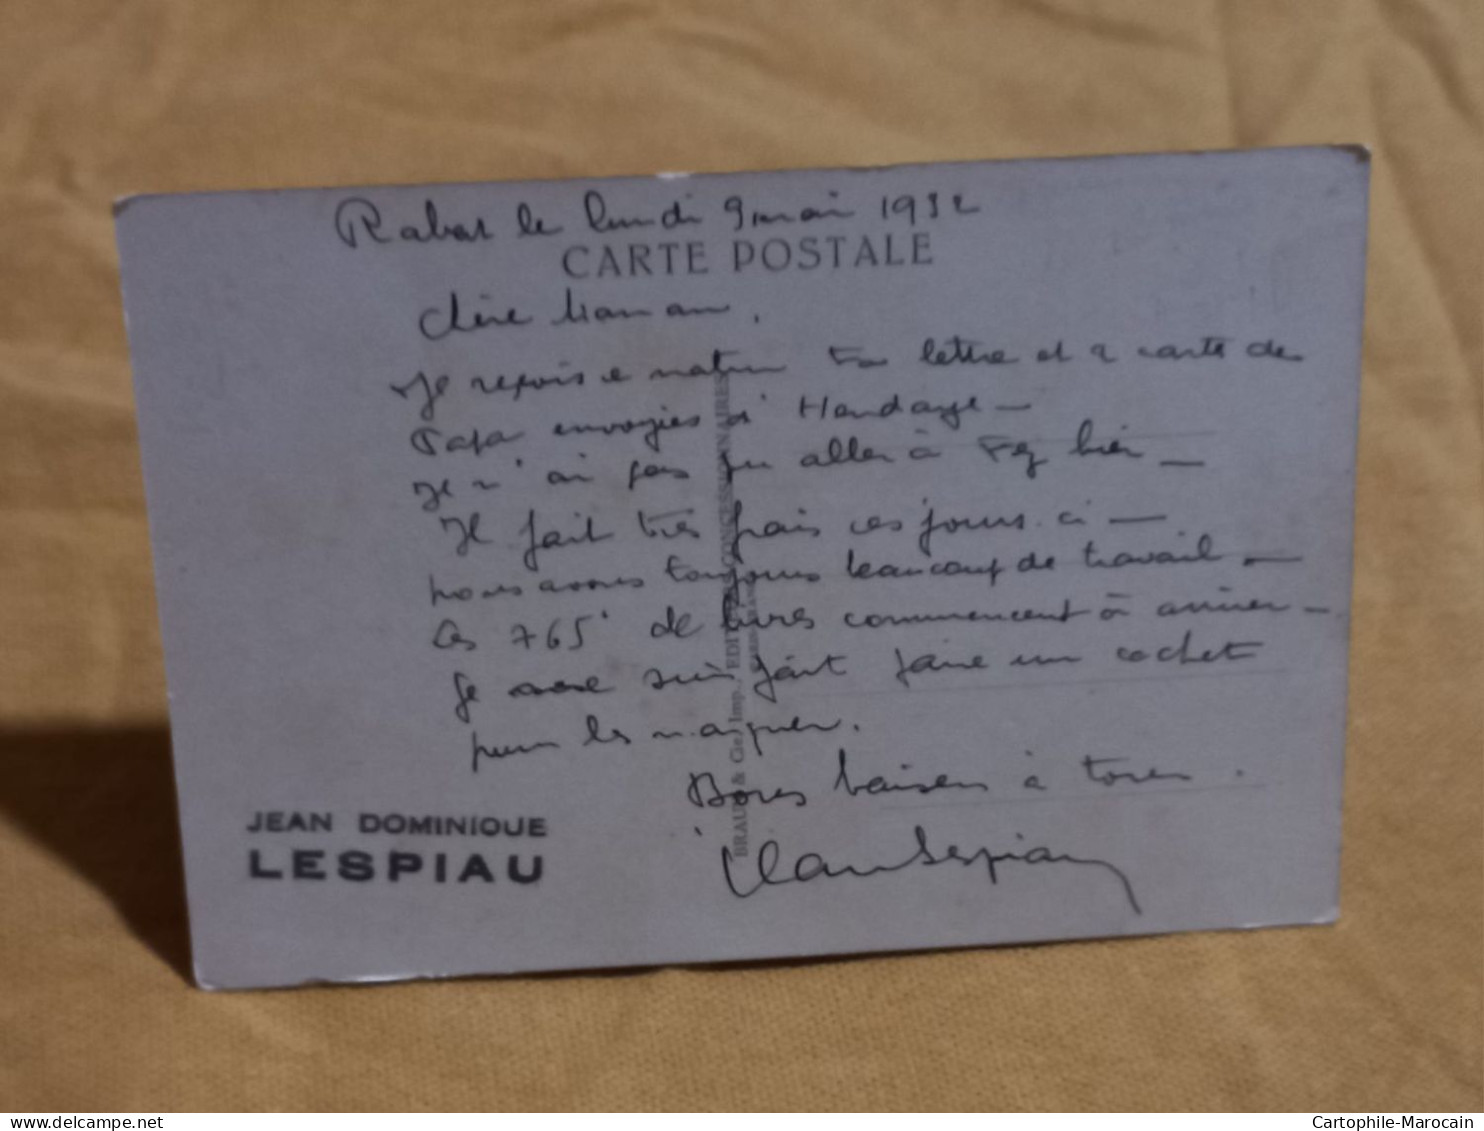 Rabat le lundi 9 mai 1932
CARTE POSTALE
Chère Maman,
Je reçois ce matin ta lettre et 2 carte de
Papa envoyées d'Hendaye –
Je n'ai pas pu aller à Fez hier –
Il fait très frais ces jours-ci –
nous avons toujours beaucoup de travail –
Les 765 de livres commencent à arriver –
Je suis fait faire un cachet
pour les marquer.
Bons baisers à tous.
Jean Lespiau
JEAN DOMINIQUE
LESPIAU
BRAUN & Cie, Imp., EDITEURS-CONCESSIONNAIRES
delcampe.net
Cartophile-Marocain